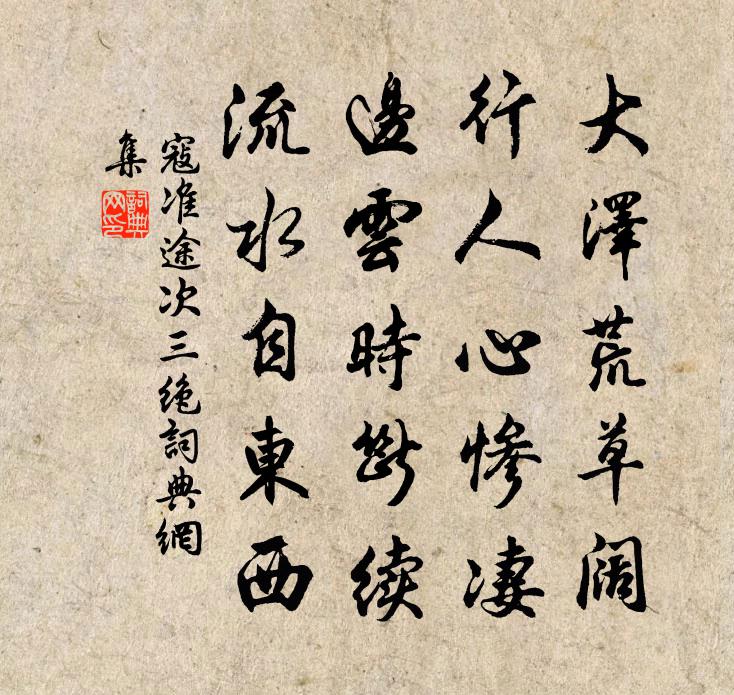 大澤荒草阔
行人心慘凄
邊雲時斷续
流水自東西
寇准途次三绝詞典網
集
詞典
网印